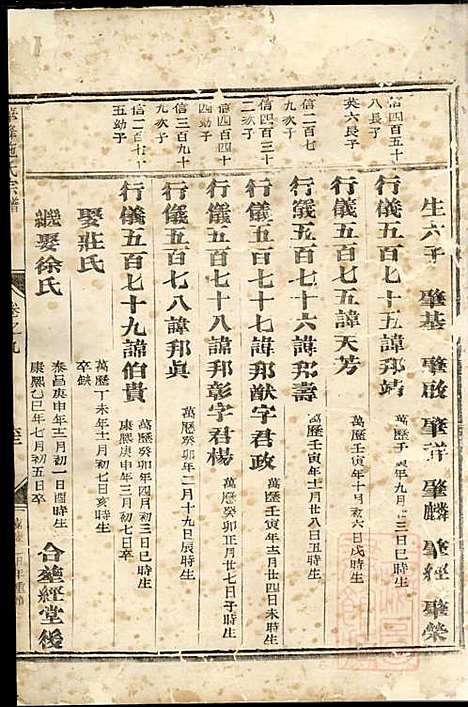 生六子 肇基 肇啟 肇祥 肇麟 肇經 肇榮
信四百五十八長子
行儀五百七十五諱邦靖
年九月十三日巳時生
英六長子
行儀五百七五諱天芳
萬歷壬寅年十月初六日戌時生
信二百七九次子
行儀五百七十六諱邦壽
萬歷壬寅年十二月廿八日丑時生
信四百三十二次子
行儀五百七十七諱邦猷字君政
萬歷壬寅年十二月廿四日未時生
信四百四十四幼子
行儀五百七十八諱邦彰字君楊
萬歷癸卯正月廿七日子時生
行儀五百七八諱邦眞
萬歷癸卯年二月十九日辰時生
信三百九十五幼子
行儀五百七十九諱伯貴
萬歷癸卯年四月初三日巳時生
康熙庚申年三月初七日卒
娶莊氏
萬歷丁未年十一月初七日亥時生
卒缺
繼娶徐氏
泰昌庚申年十二月初一日酉時生
康熙乙巳年七月初五日卒
合塟經堂後
氏宗譜
卷之九
年重修